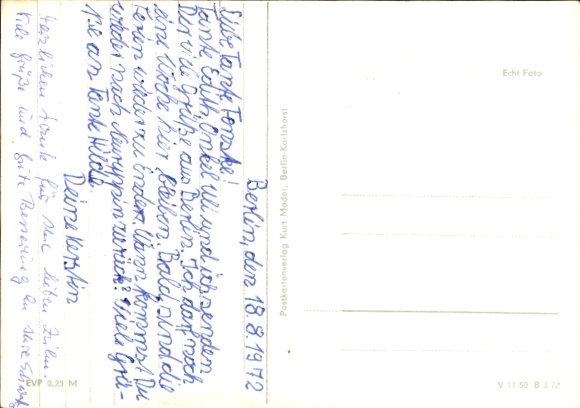 Berlin, den 18.8.1972
Liebe Tante Tonske!
Tante Edith, Onkel Uli und ich senden
Dir viele Grüße aus Berlin. Ich darf noch
eine Woche hier bleiben. Bald sind die
Ferien wieder zu Ende. Wann kommst Du
wieder nach Neuruppin zurück? Viele Grü-
ße an Tante Hilde.
Deine Kerstin
Herzlichen Dank für Deine lieben Zeilen.
Viele Grüße und gute Besserung an Deine
EVP 0,25 M
Postkartenverlag Kurt Mader, Berlin-Karlshorst
Echt Foto
V 11 50 B 3 72